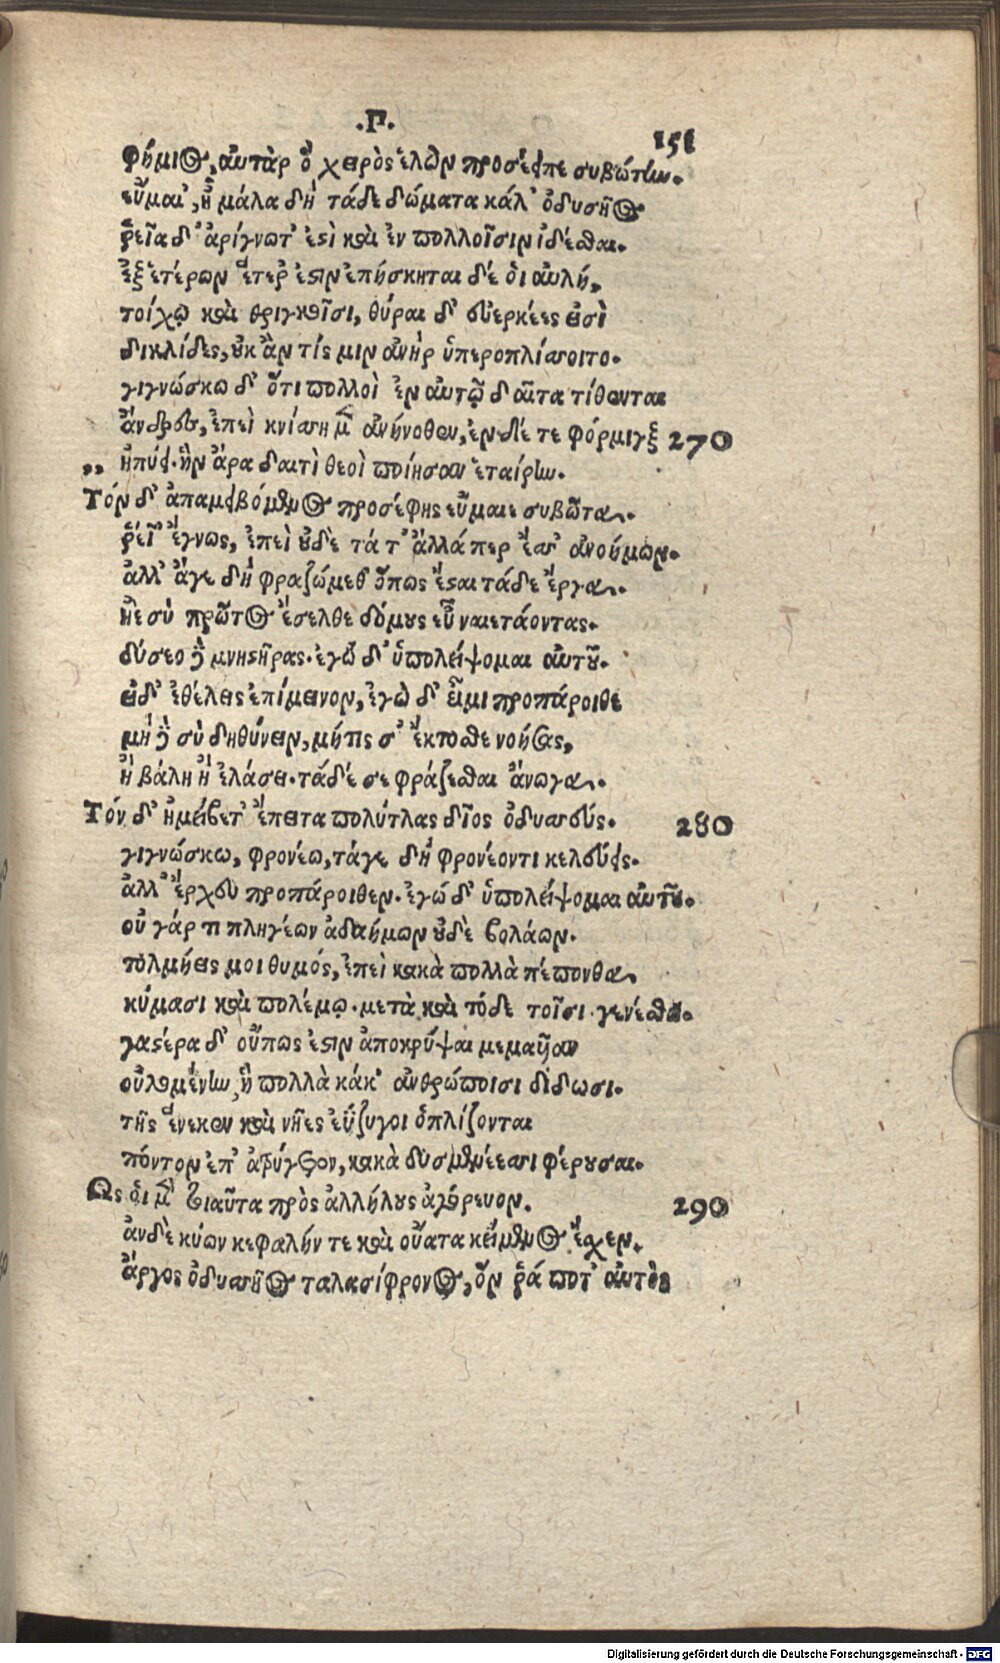 .Ρ.
151
φήμιος, αὐτὰρ ὃ χειρὸς ἑλὼν προσέειπε συβώτην.
εὔμαι', ἦ μάλα δὴ τάδε δώματα κάλ' ὀδυσῆος
ῥεῖα δ' ἀρίγνωτ' ἐστὶ καὶ ἐν πολλοῖσιν ἰδέσθαι.
ἐξ ἑτέρων ἕτερ' ἐστὶν ἐπήσκηται δέ οἱ αὐλή,
τοίχῳ καὶ θριγκοῖσι, θύραι δ' εὐερκέες εἰσὶ
δικλίδες, οὐκ ἂν τίς μιν ἀνὴρ ὑπεροπλίσσαιτο.
γιγνώσκω δ' ὅτι πολλοὶ ἐν αὐτῷ δαῖτα τίθενται
ἄνδρες, ἐπεὶ κνίσση μὲν ἀνήνοθεν, ἐν δέ τε φόρμιγξ 270
,, ἠπύει. ἣν ἄρα δαιτὶ θεοὶ ποίησαν ἑταίρην.
Τὸν δ' ἀπαμειβόμενος προσέφης εὔμαιε συβῶτα.
ῥεῖ' ἔγνως, ἐπεὶ οὐδὲ τά τ' ἄλλά περ ἔσσ' ἀνοήμων.
ἀλλ' ἄγε δὴ φραζώμεθ' ὅπως ἔσται τάδε ἔργα.
ἠὲ σὺ πρῶτος ἔσελθε δόμους εὖ ναιετάοντας.
δύσεο δὲ μνηστῆρας. ἐγὼ δ' ὑπολείψομαι αὐτοῦ.
εἰ δ' ἐθέλεις ἐπίμεινον, ἐγὼ δ' εἶμι προπάροιθε
μὴ δὲ σὺ δηθύνειν, μήτις σ' ἔκτοσθε νοήσας,
ἢ βάλη ἢ ἐλάσει. τάδέ σε φράζεσθαι ἄνωγα.
Τὸν δ' ἠμείβετ' ἔπειτα πολύτλας δῖος ὀδυσσεύς. 280
γιγνώσκω, φρονέω, τάγε δὴ φρονέοντι κελεύεις.
ἀλλ' ἔρχευ προπάροιθεν. ἐγώ δ' ὑπολείψομαι αὐτοῦ.
οὐ γάρ τι πληγέων ἀδαήμων οὐδὲ βολάων.
τολμήεις μοι θυμός, ἐπεὶ κακὰ πολλὰ πέπονθα
κύμασι καὶ πολέμῳ. μετὰ καὶ τόδε τοῖσι γενέσθω.
γαστέρα δ' οὔπως ἐστὶν ἀποκρύψαι μεμαυῖαν
οὐλομένην, ἣ πολλὰ κάκ' ἀνθρώποισι δίδωσι.
τῆς ἕνεκεν καὶ νῆες ἐΰζυγοι ὁπλίζονται
πόντον ἐπ' ἀτρύγετον, κακὰ δυσμενέεσσι φέρουσαι.
Ὣς οἱ μὲν τοιαῦτα πρὸς ἀλλήλους ἀγόρευον. 290
ἂν δὲ κύων κεφαλήν τε καὶ οὔατα κείμενος ἔσχεν,
ἄργος ὀδυσσῆος ταλασίφρονος, ὅν ῥά ποτ' αὐτὸς
Digitalisierung gefördert durch die Deutsche Forschungsgemeinschaft - DFG